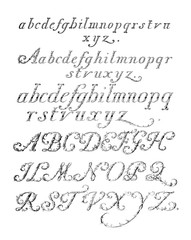 abcdefghilmnopqrstuvn
xyz.
Aabcdefghilmnopqr
struvxyz.
abcdefghilmnopq
rstruvxyz.
ABCDEFGH
ILMNOPQ
RSTVXYZ.